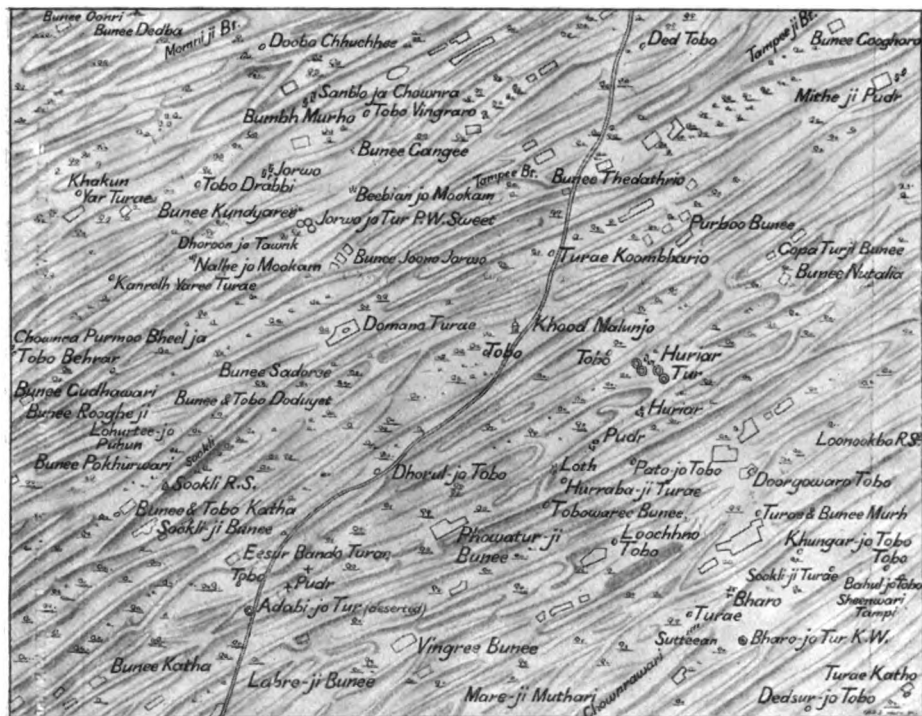 Bunee Oonri
Bunee Dedba
Momni ji Br.
Dooba Chhuchhee
Ded Tobo
Tampee ji Br.
Bunee Googhara
Mithe ji Pudr
Sanblo ja Chownra
Bumbh Murho
Tobo Vingraro
Bunee Gangee
Jorwo
Tobo Drabbi
Khakun
Yar Turae
Beebian jo Mookam
Tampee Br.
Bunee Thedathrio
Bunee Kundyaree
Jorwo jo Tur P.W. Sweet
Purboo Bunee
Dhoroon jo Tawnk
Nalhe jo Mookam
Bunee Joono Jorwo
Turae Koombhario
Gopa Turji Bunee
Bunee Nutalia
Kanrelh Yaree Turae
Chownra Purmoo Bheel ja
Tobo Behrar
Domana Turae
Khood Malunjo
Tobo
Tobo
Huriar
Tur
Bunee Sadorse
Bunee Gudhawari
Bunee & Tobo Doduyet
Bunee Rooghe ji
Huriar
Lohurtee-jo
Puhun
Sookli
Pudr
Loonookho R.S.
Bunee Pokhurwari
Sookli R.S.
Dhorul-jo Tobo
Loth
Pata-jo Tobo
Doorgowaro Tobo
Hurraba-ji Turae
Bunee & Tobo Katha
Tobowaree Bunee
Turae & Bunee Murh
Sookli-ji Bunee
Phowatur-ji
Bunee
Loochhno
Tobo
Khungar-jo Tobo
Tobo
Eesur Bando Turan
Tobo
Pudr
Sookli-ji Turae
Bahul-jo Tobo
Bharo
Sheenwari
Tampi
Adabi-jo Tur (deserted)
Turae
Sutteean
Bharo-jo Tur K.W.
Vingree Bunee
Bunee Katha
Labre-ji Bunee
Mare-ji Muthari
Chownrawari
Turae Katho
Dedsur-jo Tobo